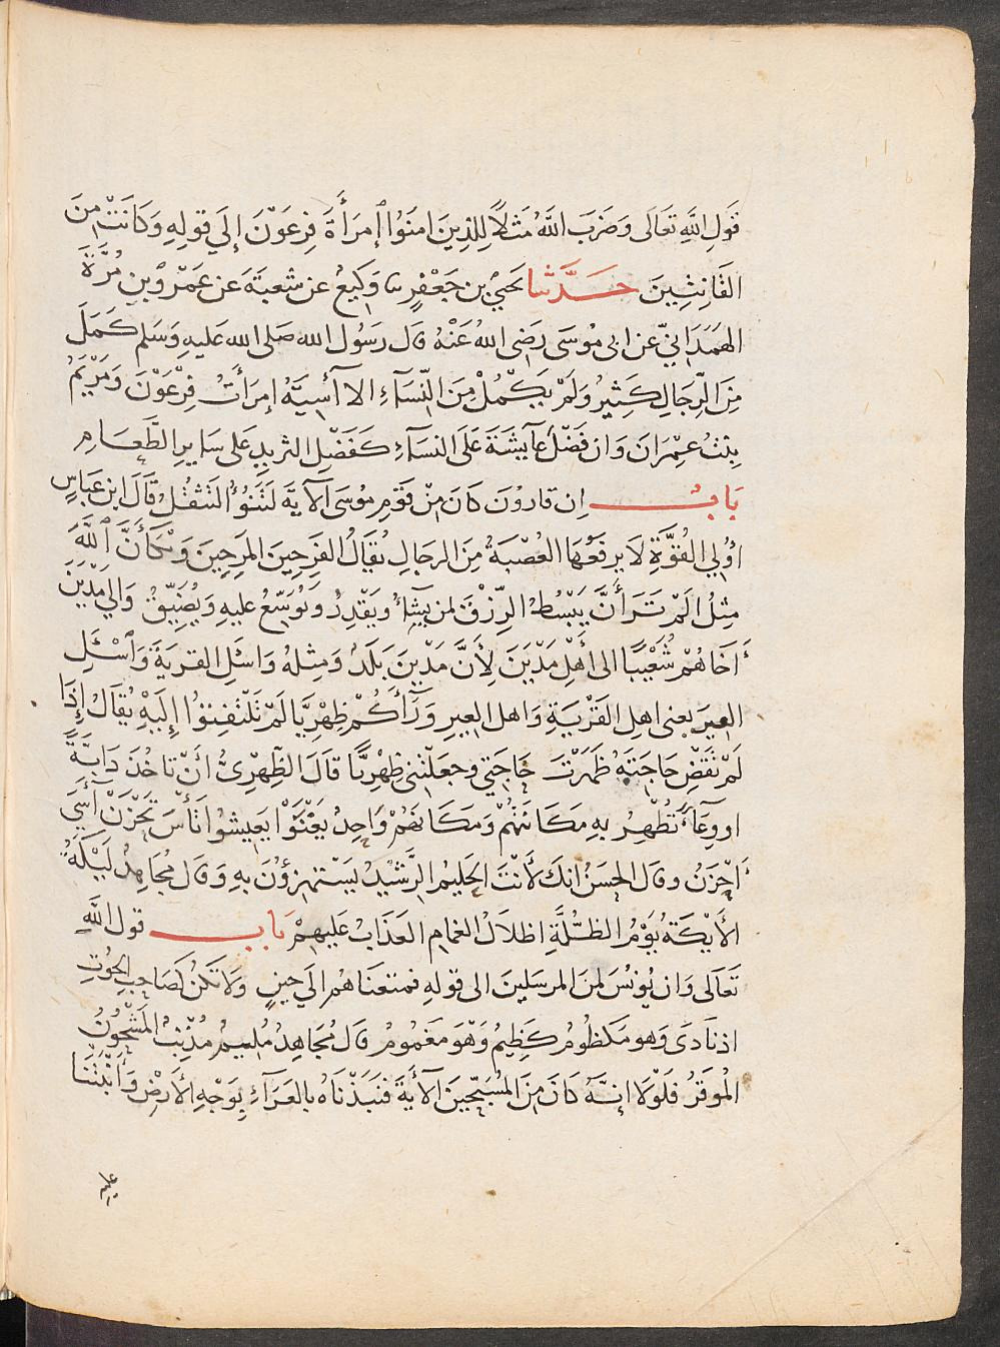 قَولِ اللَّهِ تَعَالَى وَضَرَبَ اللَّهُ مَثَلًا لِلذِينَ امَنَوُا إمرَأَةَ فِرعَوْنَ إِلَي قَولِهِ وَكَانَتْ مِنَ
القَانِتِينَ حَدَّثَنا يَحْيُ بن جَعْفَرٍ نا وَكِيعُ عن شعبَةَ عَن عَمْرِو بْنِ مُرَّةَ
الهَمَدَانِيّ عن ابى مُوسَى رَضى اللهُ عَنْهُ قال رَسُول الله صَلى الله عَليهِ وَسَلم كَمَلَ
مِنَ الرِّجَالِ كَثِيرُ وَلَمْ يَكْمُلْ مِنَ النِّسَآءِ الا آسِيَةُ إمرَأَتُ فِرْعَوْنَ وَمَرْيَمُ
بِنْتُ عِمْرَانَ وَان فَضْلَ عَآيِشَةَ عَلَى النسَآءِ كَفَضْلِ الثريدِ عَلى سَايرِ الطَّعَامِ
بَابُ اِن قارُونَ كَانَ مِنْ قَوْمِ مُوسَى الآيَةَ لَتَنُؤُ لَتَثقُلُ قَالَ ابن عَبَاسٍ
اوُلِي القُوَّةِ لَا يرفَعُهَا العُصْبَةُ مِنَ الرجَالِ يُقَالُ الفَرِحِينَ المَرِحِينَ وَيْكَأَنَّ اللَّهَ
مِثلُ الَمْ تَرَ أَنَّ يَبْسُطُ الرِّزْقَ لمن يَشَاءُ وَيَقْدِرُ وَيُوَسِّعُ عَليهِ وَيُضَيِّقُ وَالِي مَدْيَنَ
أَخَاهُمْ شُعَيْبًا الى أَهْلِ مَدْيَنَ لِأَنَّ مَدْيَنَ بَلَدُ وَمِثلهُ وَاسْئَلِ القريَةَ وَاسْئَلِ
العِيرَ يعنى اهلِ القَرْيَةِ وَاهل العِيرِ وَرَآءَكُمْ ظِهْرِيًّا لَمْ تَلْتَفِتوُا إِلَيْهِ يُقَالُ إِذَا
لَمْ تَقْضِ حَاجَتَهُ ظَهَرْتَ حَاجَتِي وجعَلْتَنى ظِهْرِيًّا قَالَ الظِّهْرِىُّ أَنْ تَاخُذَ دَابَّةً
او وِعَآءً تَظْهِرُ بهِ مَكَانَتُهُمْ وَمَكَانهُمْ وَاحِدُ يَغْنَوْا يَعِيشوُا تَأْسَ تَحْزَنْ آسَى
أَحْزَنُ وقال الحسَنُ انك لأَنْتَ الحَلِيمُ الرَّشِيدُ يَسْتَهزِؤُنَ بِهِ وَقَال مُجَاهِدُ لَيْكَةُ
الأَيْكَةُ يَوْمُ الظُّلَّةِ اظلَالُ الغمَامِ العَذَابُ عَلَيهِمْ بَابُ قول اللَّهِ
تَعَالَى وَان يُونسَ لمِنَ المرسَلينَ الى قَولهِ فمتعنَاهُم الَي حِينٍ وَلَا تَكُنْ كَصَاحِبِ الحُوتِ
اذ نَادَى وَهو مَكظُومُ كَظِيمُ وَهْوَ مَغمُومُ قَال مُجَاهِدُ مُلِيمُ مُذْنِبُ المَشْحُونُ
المُوقَرُ فَلَوْلَا إنَّهُ كَانَ مِنَ المُسَبِّحِينَ الآيَةَ فَنَبَذْنَاهُ بِالعَرَآءِ بِوَجْهِ الأَرضِ وَأَنْبَتْنَا